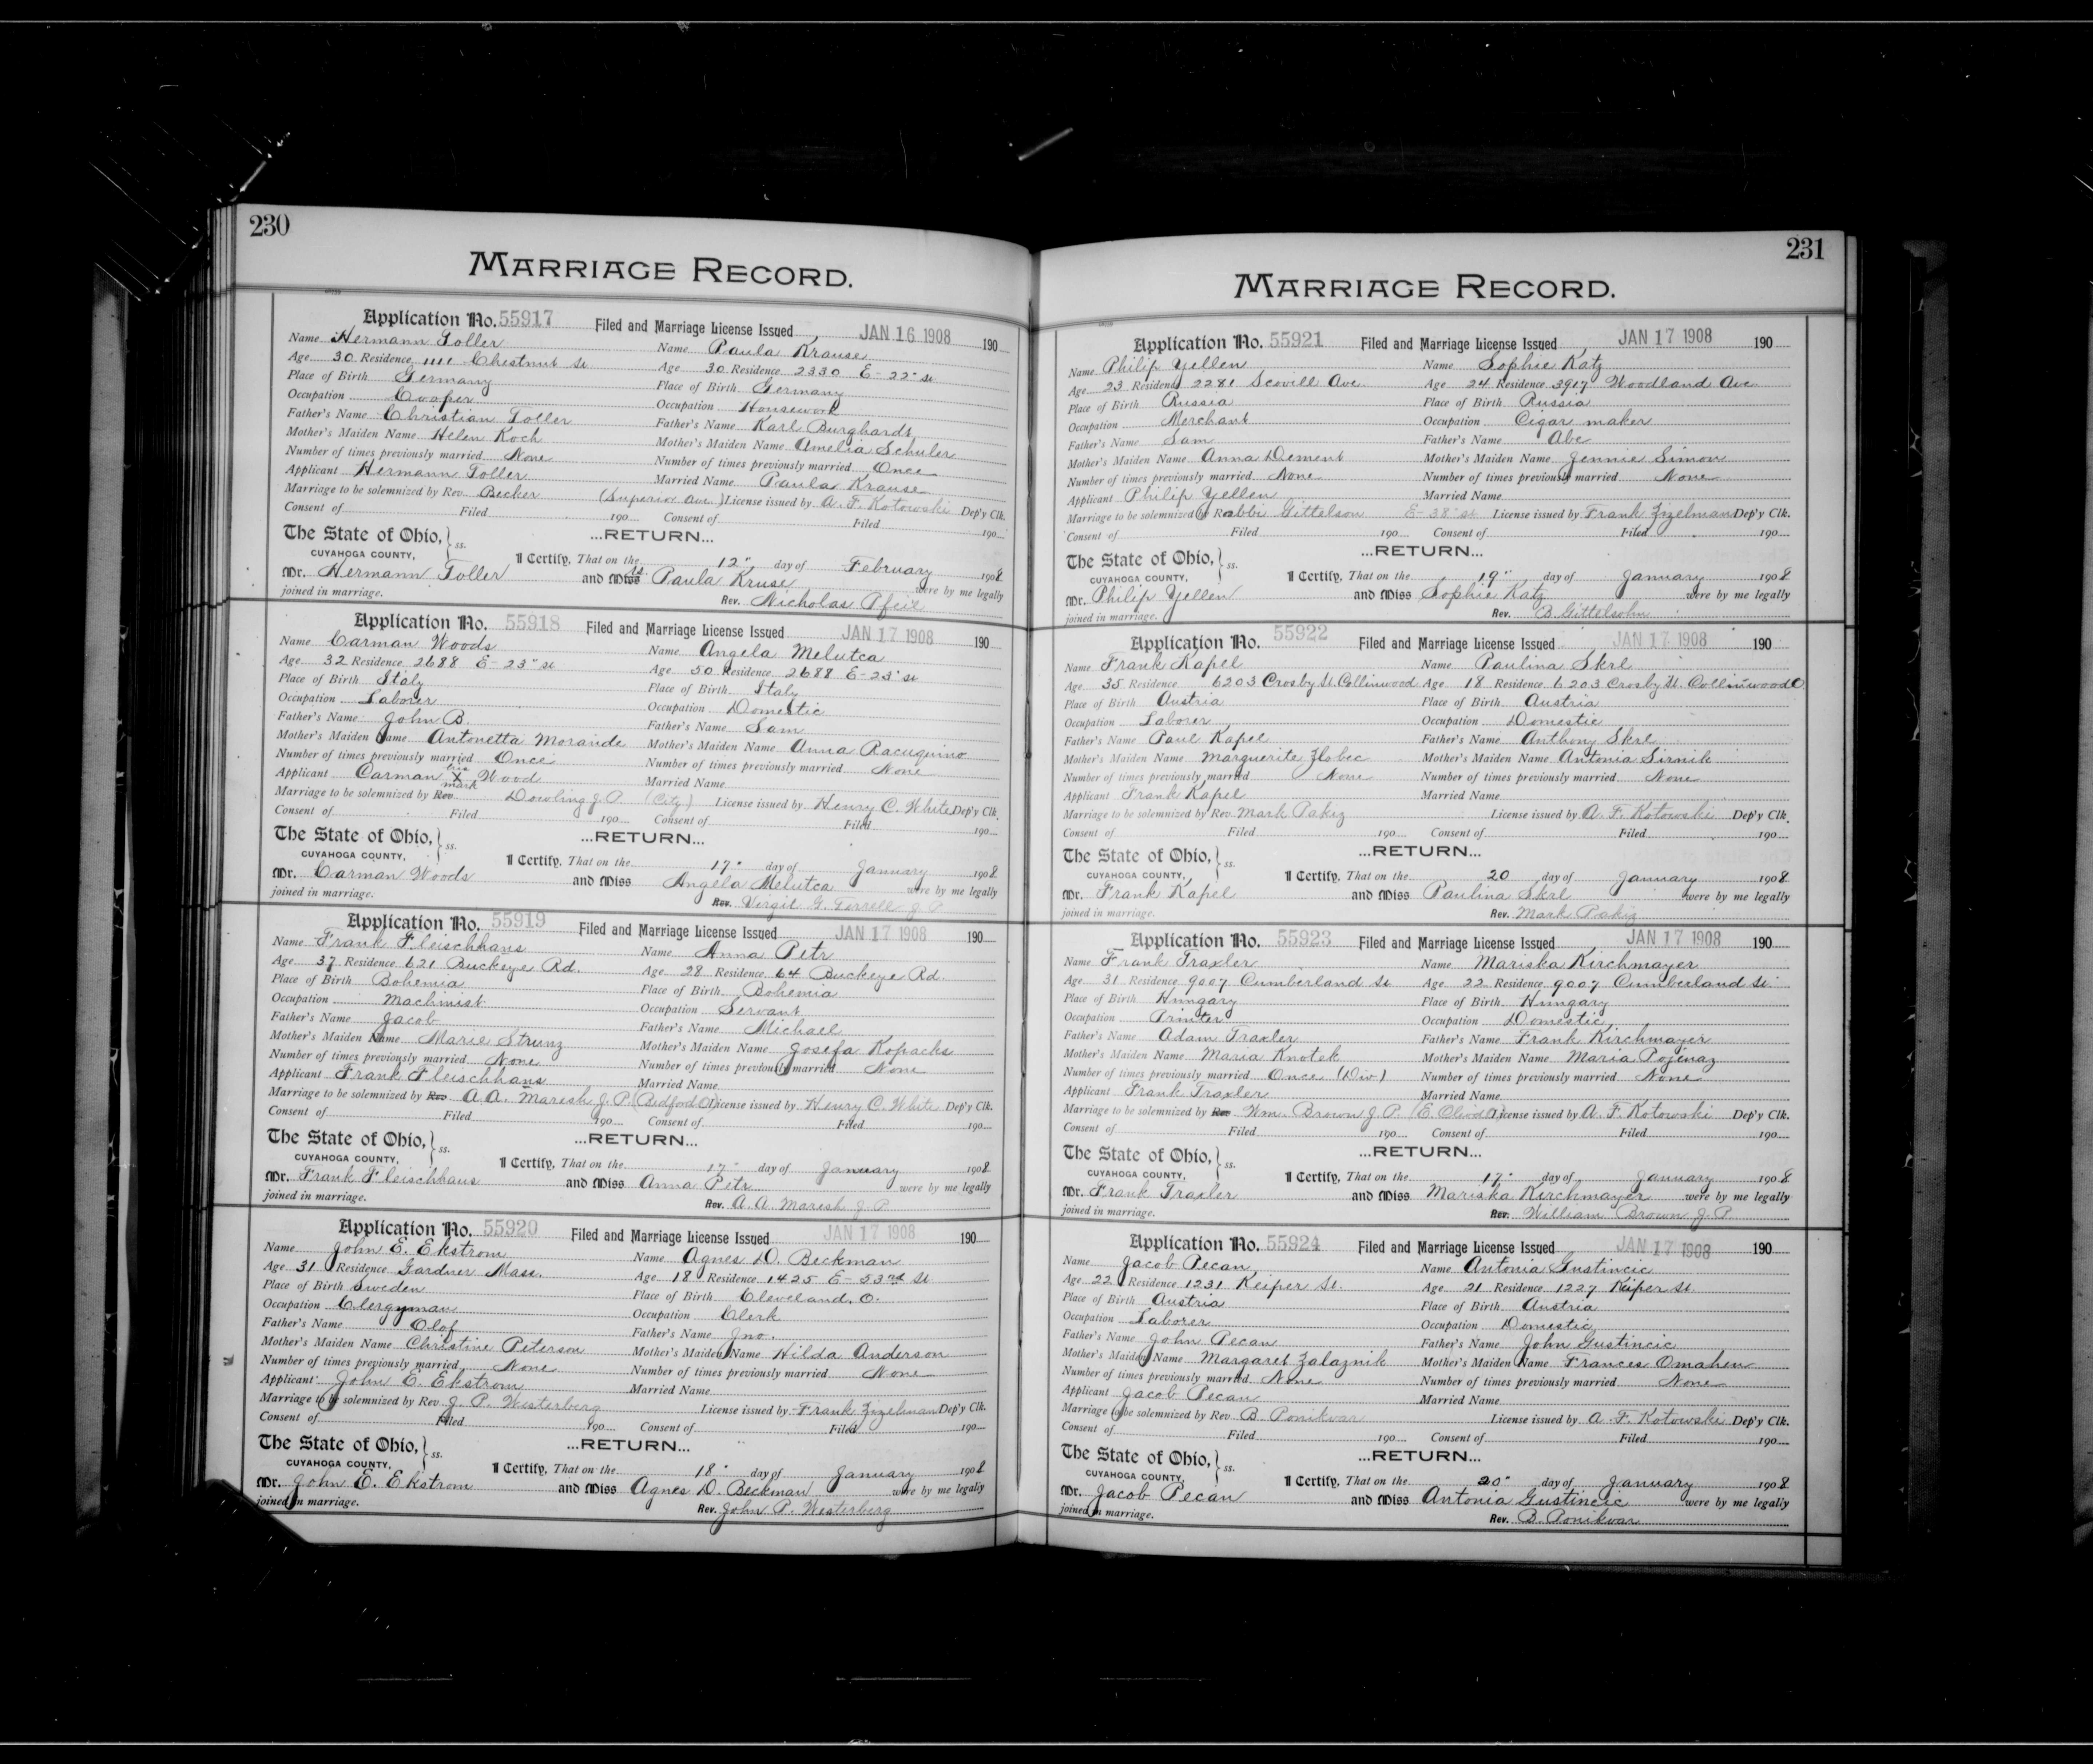 230
MARRIAGE RECORD.
Application No. 55917 Filed and Marriage License Issued JAN 16 1908 190
Name Hermann Toller Name Paula Krause
Age 30 Residence 1111 Chestnut St Age 30 Residence 2330 E-22" St
Place of Birth Germany Place of Birth Germany
Occupation Cooper Occupation Housework
Father's Name Christian Toller Father's Name Karl Burghardt
Mother's Maiden Name Helen Koch Mother's Maiden Name Amelia Schuler
Number of times previously married None Number of times previously married Once
Applicant Hermann Toller Married Name Paula Krause
Marriage to be solemnized by Rev. Becker (Superior Ave.) License issued by A. F. Kotowski Dep'y Clk.
Consent of Filed 190 Consent of Filed 190
The State of Ohio, ss. ...RETURN...
CUYAHOGA COUNTY, I Certify, That on the 12" day of February 1908
Mr. Hermann Toller and Mrs Paula Kruse were by me legally
joined in marriage. Rev. Nicholas Pfeil
Application No. 55918 Filed and Marriage License Issued JAN 17 1908 190
Name Carman Woods Name Angela Melutca
Age 32 Residence 2688 E-23" St Age 50 Residence 2688 E-23" St
Place of Birth Italy Place of Birth Italy
Occupation Laborer Occupation Domestic
Father's Name John B. Father's Name Sam
Mother's Maiden Name Antonetta Morande Mother's Maiden Name Anna Racuquino
Number of times previously married Once Number of times previously married None
Applicant Carman his X mark Wood Married Name
Marriage to be solemnized by Rev. Dowling J.P. (City) License issued by Henry C. White Dep'y Clk.
Consent of Filed 190 Consent of Filed 190
The State of Ohio, ss. ...RETURN...
CUYAHOGA COUNTY, I Certify, That on the 17" day of January 1908
Mr. Carman Woods and Miss Angela Melutca were by me legally
joined in marriage. Rev. Virgil G. Terrell J.P.
Application No. 55919 Filed and Marriage License Issued JAN 17 1908 190
Name Frank Fleischhans Name Anna Petr
Age 37 Residence 621 Buckeye Rd. Age 28 Residence 64 Buckeye Rd.
Place of Birth Bohemia Place of Birth Bohemia
Occupation Machinist Occupation Servant
Father's Name Jacob Father's Name Michael
Mother's Maiden Name Marie Strunz Mother's Maiden Name Josefa Kopacks
Number of times previously married None Number of times previously married None
Applicant Frank Fleischhans Married Name
Marriage to be solemnized by Rev A.A. Maresh J.P. (Bedford O.) License issued by Henry C. White Dep'y Clk.
Consent of Filed 190 Consent of Filed 190
The State of Ohio, ss. ...RETURN...
CUYAHOGA COUNTY, I Certify, That on the 17" day of January 1908
Mr. Frank Fleischhaus and Miss Anna Petr were by me legally
joined in marriage. Rev. A.A. Maresh J.P.
Application No. 55920 Filed and Marriage License Issued JAN 17 1908 190
Name John E. Ekstrom Name Agnes D. Beckman
Age 31 Residence Gardner Mass. Age 18 Residence 1425 E-53rd St
Place of Birth Sweden Place of Birth Cleveland, O.
Occupation Clergyman Occupation Clerk
Father's Name Olof Father's Name Jno.
Mother's Maiden Name Christine Peterson Mother's Maiden Name Hilda Anderson
Number of times previously married None Number of times previously married None
Applicant John E. Ekstrom Married Name
Marriage to be solemnized by Rev J. P. Westerberg License issued by Frank Zizelman Dep'y Clk.
Consent of Filed 190 Consent of Filed 190
The State of Ohio, ss. ...RETURN...
CUYAHOGA COUNTY, I Certify, That on the 18" day of January 1908
Mr. John E. Ekstrom and Miss Agnes D. Beckman were by me legally
joined in marriage. Rev. John P. Westerberg
231
MARRIAGE RECORD.
Application No. 55921 Filed and Marriage License Issued JAN 17 1908 190
Name Philip Yellen Name Sophie Katz
Age 23 Residence 2281 Scovill Ave. Age 24 Residence 3917 Woodland Ave
Place of Birth Russia Place of Birth Russia
Occupation Merchant Occupation Cigar maker
Father's Name Sam Father's Name Abe
Mother's Maiden Name Anna Dement Mother's Maiden Name Jennie Simon
Number of times previously married None Number of times previously married None
Applicant Philip Yellen Married Name
Marriage to be solemnized by Rabbi Gittelson E-38" St License issued by Frank Zizelman Dep'y Clk.
Consent of Filed 190 Consent of Filed 190
The State of Ohio, ss. ...RETURN...
CUYAHOGA COUNTY, I Certify, That on the 19" day of January 1908
Mr. Philip Yellen and Miss Sophie Katz were by me legally
joined in marriage. Rev. B. Gittelsohn
Application No. 55922 Filed and Marriage License Issued JAN 17 1908 190
Name Frank Kapel Name Paulina Skrl
Age 35 Residence 6203 Crosby St. Collinwood Age 18 Residence 6203 Crosby St. Collinwood O
Place of Birth Austria Place of Birth Austria
Occupation Laborer Occupation Domestic
Father's Name Paul Kapel Father's Name Anthony Skrl
Mother's Maiden Name Marguerite Zlobec Mother's Maiden Name Antonia Sirnik
Number of times previously married None Number of times previously married None
Applicant Frank Kapel Married Name
Marriage to be solemnized by Rev Mark Pakiz License issued by A. F. Kotowski Dep'y Clk.
Consent of Filed 190 Consent of Filed 190
The State of Ohio, ss. ...RETURN...
CUYAHOGA COUNTY, I Certify, That on the 20 day of January 1908
Mr. Frank Kapel and Miss Paulina Skrl were by me legally
joined in marriage. Rev. Mark Pakiz
Application No. 55923 Filed and Marriage License Issued JAN 17 1908 190
Name Frank Traxler Name Mariska Kirchmayer
Age 31 Residence 9007 Cumberland St Age 22 Residence 9007 Cumberland St.
Place of Birth Hungary Place of Birth Hungary
Occupation Printer Occupation Domestic
Father's Name Adam Traxler Father's Name Frank Kirchmayer
Mother's Maiden Name Maria Knotek Mother's Maiden Name Maria Pojinaz
Number of times previously married Once (Div.) Number of times previously married None
Applicant Frank Traxler Married Name
Marriage to be solemnized by Rev Wm. Brown J.P. (E. Clevd.) License issued by A. F. Kotowski Dep'y Clk.
Consent of Filed 190 Consent of Filed 190
The State of Ohio, ss. ...RETURN...
CUYAHOGA COUNTY, I Certify, That on the 17" day of January 1908
Mr. Frank Traxler and Miss Mariska Kirchmayer were by me legally
joined in marriage. Rev. William Brown J.P.
Application No. 55924 Filed and Marriage License Issued JAN 17 1908 190
Name Jacob Pecan Name Antonia Gustincic
Age 22 Residence 1231 Keiper St. Age 21 Residence 1227 Keiper St.
Place of Birth Austria Place of Birth Austria
Occupation Laborer Occupation Domestic
Father's Name John Pecan Father's Name John Gustincic
Mother's Maiden Name Margaret Zalaznik Mother's Maiden Name Frances Omahen
Number of times previously married None Number of times previously married None
Applicant Jacob Pecan Married Name
Marriage to be solemnized by Rev B. Ponikvar License issued by A. F. Kotowski Dep'y Clk.
Consent of Filed 190 Consent of Filed 190
The State of Ohio, ss. ...RETURN...
CUYAHOGA COUNTY, I Certify, That on the 20" day of January 1908
Mr. Jacob Pecan and Miss Antonia Gustincic were by me legally
joined in marriage. Rev. B. Ponikvar